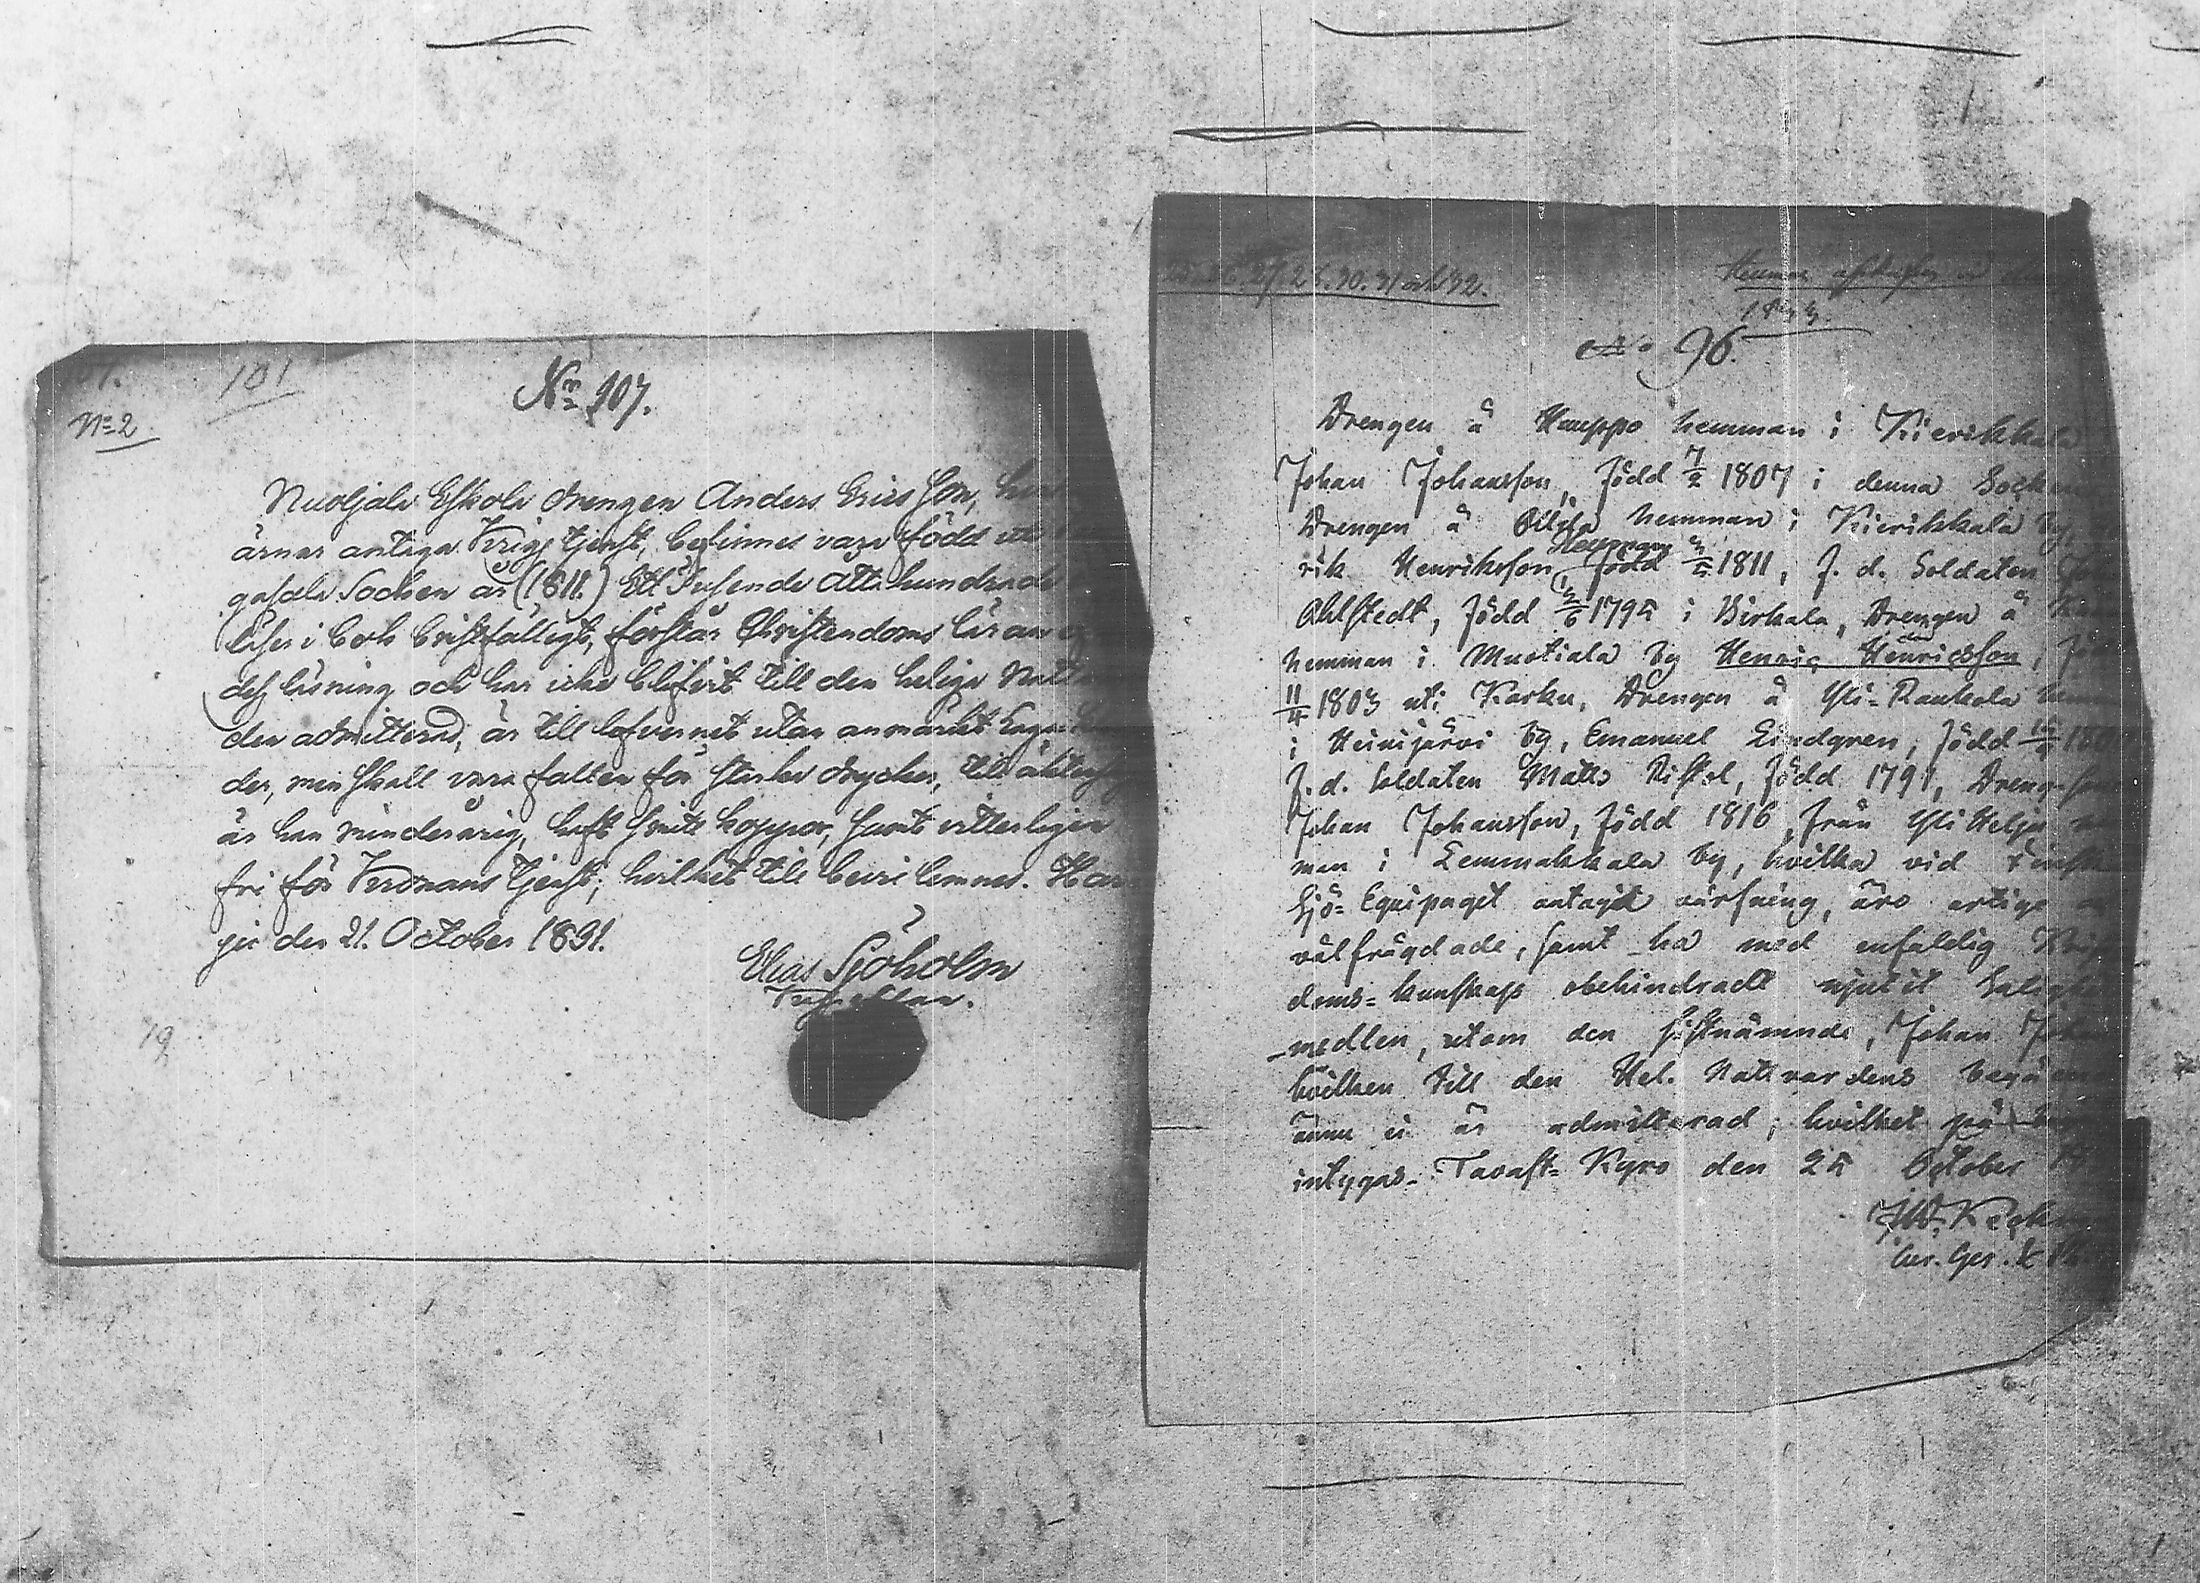 101
Nr 107.
No 2
Nuoljala Eskola drengen Anders Ericsson,
ärnar antaga Krigs tjenst, befinnes vara född uti
gasala Socken år (1811.) Ett Tusende Åtta hundrade
läser i bok bristfälligt, förstår Christendoms läran
dess läsning och har icke blifvit till den heliga Natt
den admitterad, är till lefvernet utan anmärkt
der, men skall vara fallen för starka drycker, till äktenskap
är han minderårig, haft Smitt koppor, samt vitterligen
fri för Kronans tjenst; hvilket till bevis lemnas. Kan
den 21. October 1831.
Elias Sjöholm
19
26. 27. 28. 30. 31 och 32.
No 96.
Drengen å Hauppo hemman i Kierikkala
Johan Johansson, född 7/2 1807 i denna Socken
Drengen å Ollila hemman i Kierikkala by,
rik Henriksson, född 1811, f. d. Soldaten
Ahlstedt, född 1795 i Birkala, Drengen å
hemman i Mustiala by Henric Henricsson,
11/4 1803 uti Karku, Drengen å Yli-Rankala
i Heinijärvi by, Emanuel Lindgren, född
F. d. Soldaten Matts Ristel, född 1791, Dreng
Johan Johansson, född 1816, från Yli Heljä
man i Lemmakkala by, hvilka vid Finska
Sjö-Equipaget antagit värfning, äro artige
välfrägdade, samt ha med enfaldig
doms-kunskap obehindradt njutit Salighets
medlen, utom den sistnämnde, Johan
hvilken till den Hel. Nattvardens begående
ännu ei är admitterad; hvilket på
intygas. Tavast-Kyro den 25 October